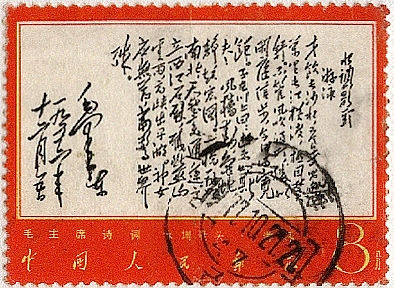 水调歌头
游泳
才饮长沙水又食武昌鱼
万里长江横渡极目楚
天舒不管风吹浪打胜似
闲庭信步今日得宽
馀子在川上曰逝者如斯
夫风樯动龟蛇
静起宏图一桥飞架
南北天堑变通途更
立西江石壁截断巫山
云雨高峡出平湖神女
应无恙当惊世界
殊
毛泽东
一九五六年
十二月五日
毛主席诗词
中国人民
8分